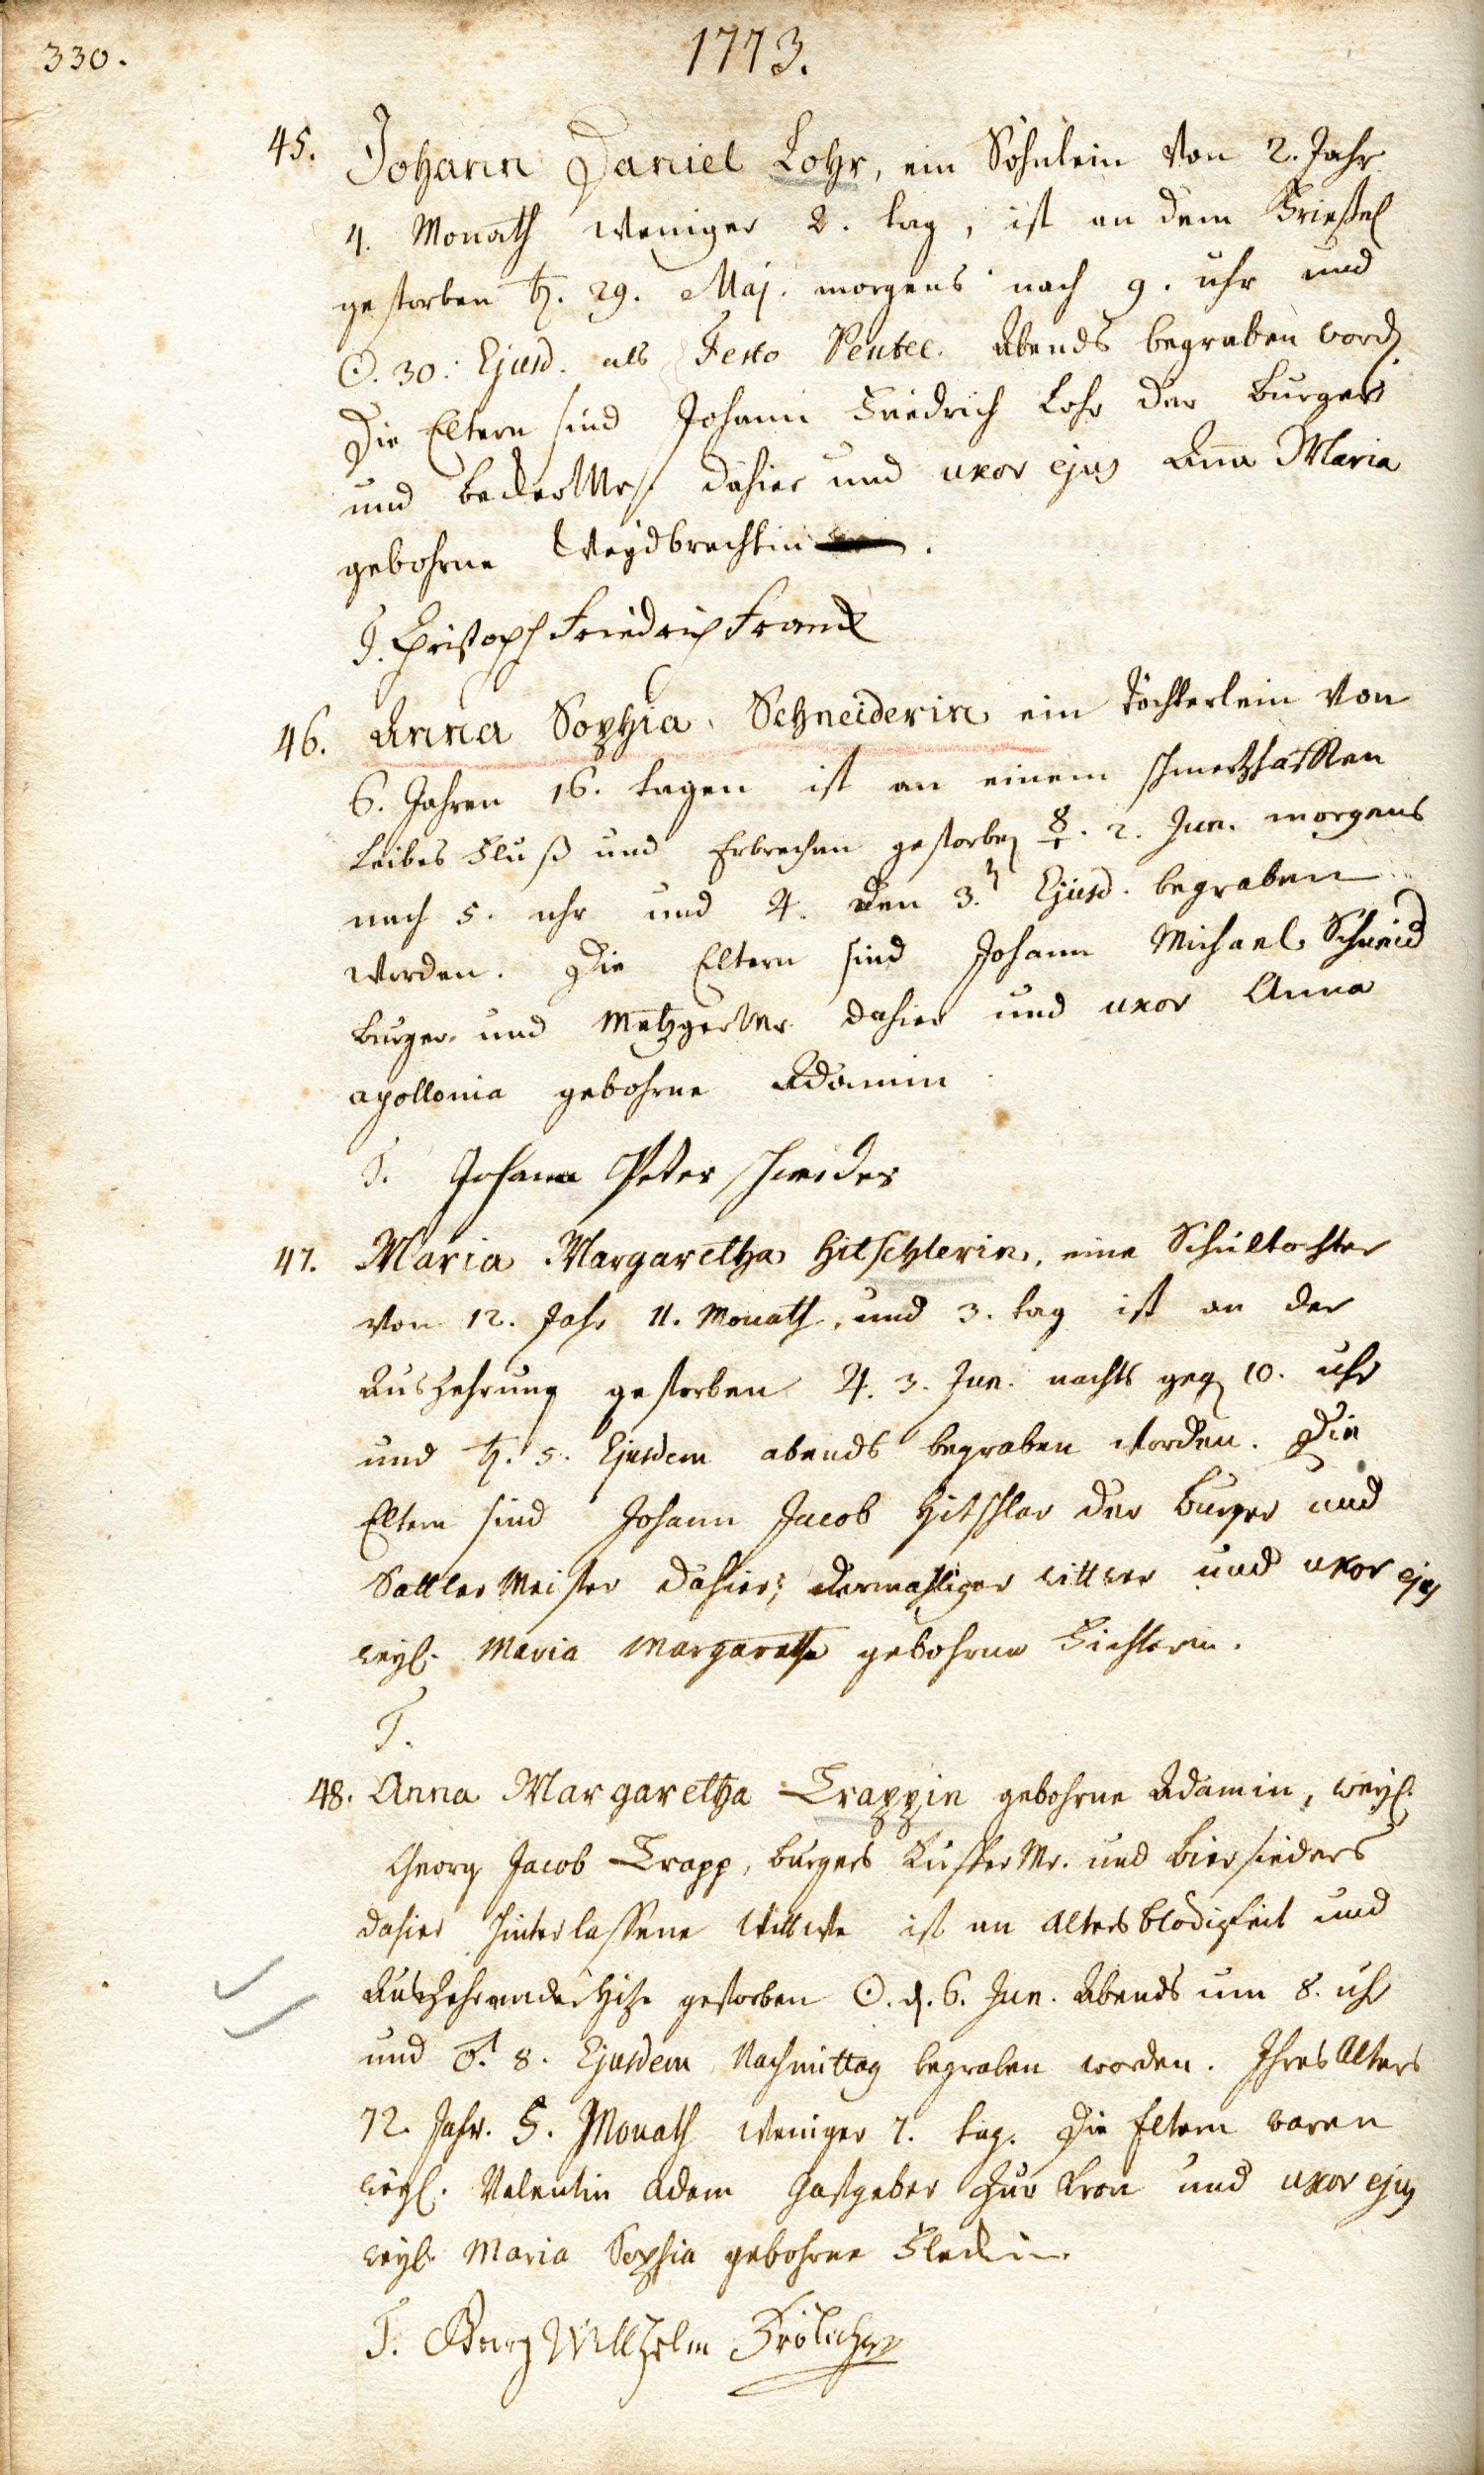 330.
1773.
45. Johann Daniel Lohr, ein Söhnlein von 2. Jahr
4. Monath weniger 2. tag, ist an dem Frießel
gestorben ♄. 29. Maj. morgens nach 9. uhr und
☉. 30. Ejusd. als Festo Pentec. Abends begraben word.
Die Eltern sind Johann Friedrich Lohr der burger
und becker Mr. dahier und uxor ejus Anna Maria
gebohrne Weydbrechtin
T. Christoph Friedrich Franck
46. Anna Sophia Schneiderin ein Töchterlein von
6. Jahren 16. tagen ist an einem schmertzhafften
Leibes Fluß und Erbrechen gestorben ☿. 2. Jun. morgens
nach 5. uhr und ♃. den 3. Ejusd. begraben
worden. Die Eltern sind Johann Michael Schneid
burger und Metzger Mr. dahier und uxor Anna
apollonia gebohrne Adamin
T. Johann Peter schneider
47. Maria Margaretha Hitschlerin, eine Schultochter
von 12. Jahr 11. Monath, und 3. tag ist an der
Auszehrung gestorben ♃. 3. Jun. nachts geg. 10. uhr
und ♄. 5. Ejusdem abends begraben worden. Die
Eltern sind Johann Jacob Hitschler der burger und
Sattler Meister dahier, dermahliger wittwer und uxor ejus
weyl. Maria Margaretha gebohrne Fichtern.
T.
48. Anna Margaretha Trappin gebohrne Adamin, weyl.
Georg Jacob Trapp, burgers Küffer Mr. und Biersieders
dahier hinterlassene Wittwe ist an Altersblödigkeit und
Auszehrender Hitze gestorben ☉. d. 6. Jun. Abends um 8. uhr
und ♂. 8. Ejusdem Nachmittag begraben worden. Ihres Alters
72. Jahr. 5. Monath weniger 7. tag. Die Eltern waren
weyl. Valentin Adam Gastgeber zur Kron und uxor ejus
weyl. Maria Sophia gebohrne Fleckin.
T. Georg Willhelm Frölich